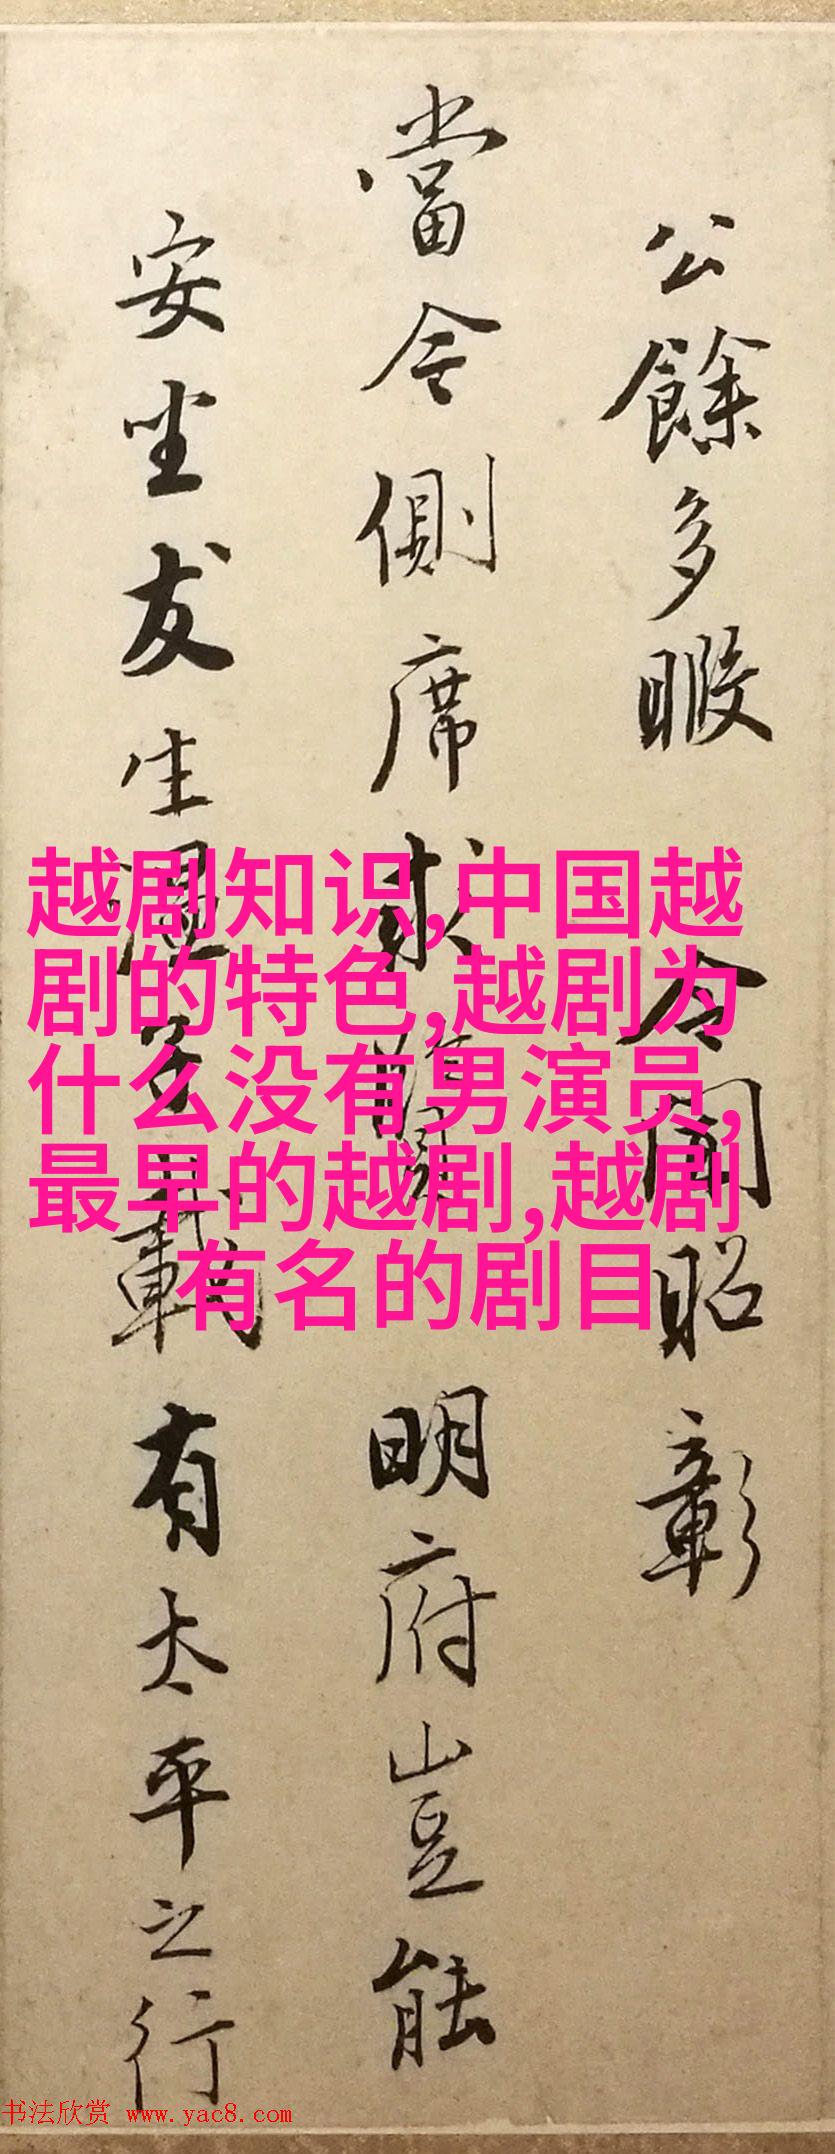 公餘多暇 令聞昭彰
當令側席求賢 明府豈能
安坐友生還當載有太平之行
越剧知识,中国越
剧的特色,越剧为
什么没有男演员,
最早的越剧,越剧
有名的剧目
书法欣赏 www.yac8.com